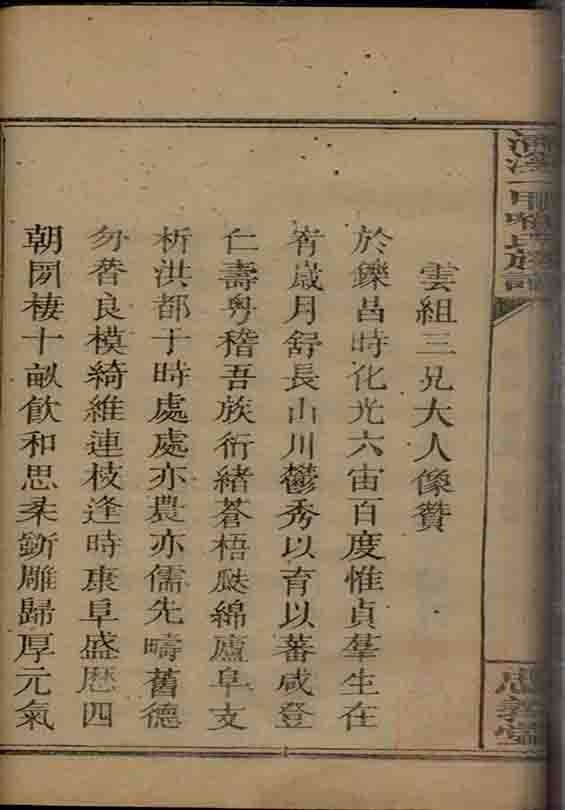 雲組三兄大人像贊
於鑠昌時化光六宙百度惟貞羣生在
宥歲月舒長山川鬱秀以育以蕃咸登
仁壽粵稽吾族衍緒蒼梧瓞綿廬阜支
析洪都于時處處亦農亦儒先疇舊德
勿朁良模綺維連枝逢時康阜盛曆四
朝閑棲十畝飲和思柔斲雕歸厚元氣
氏族譜
忠義堂